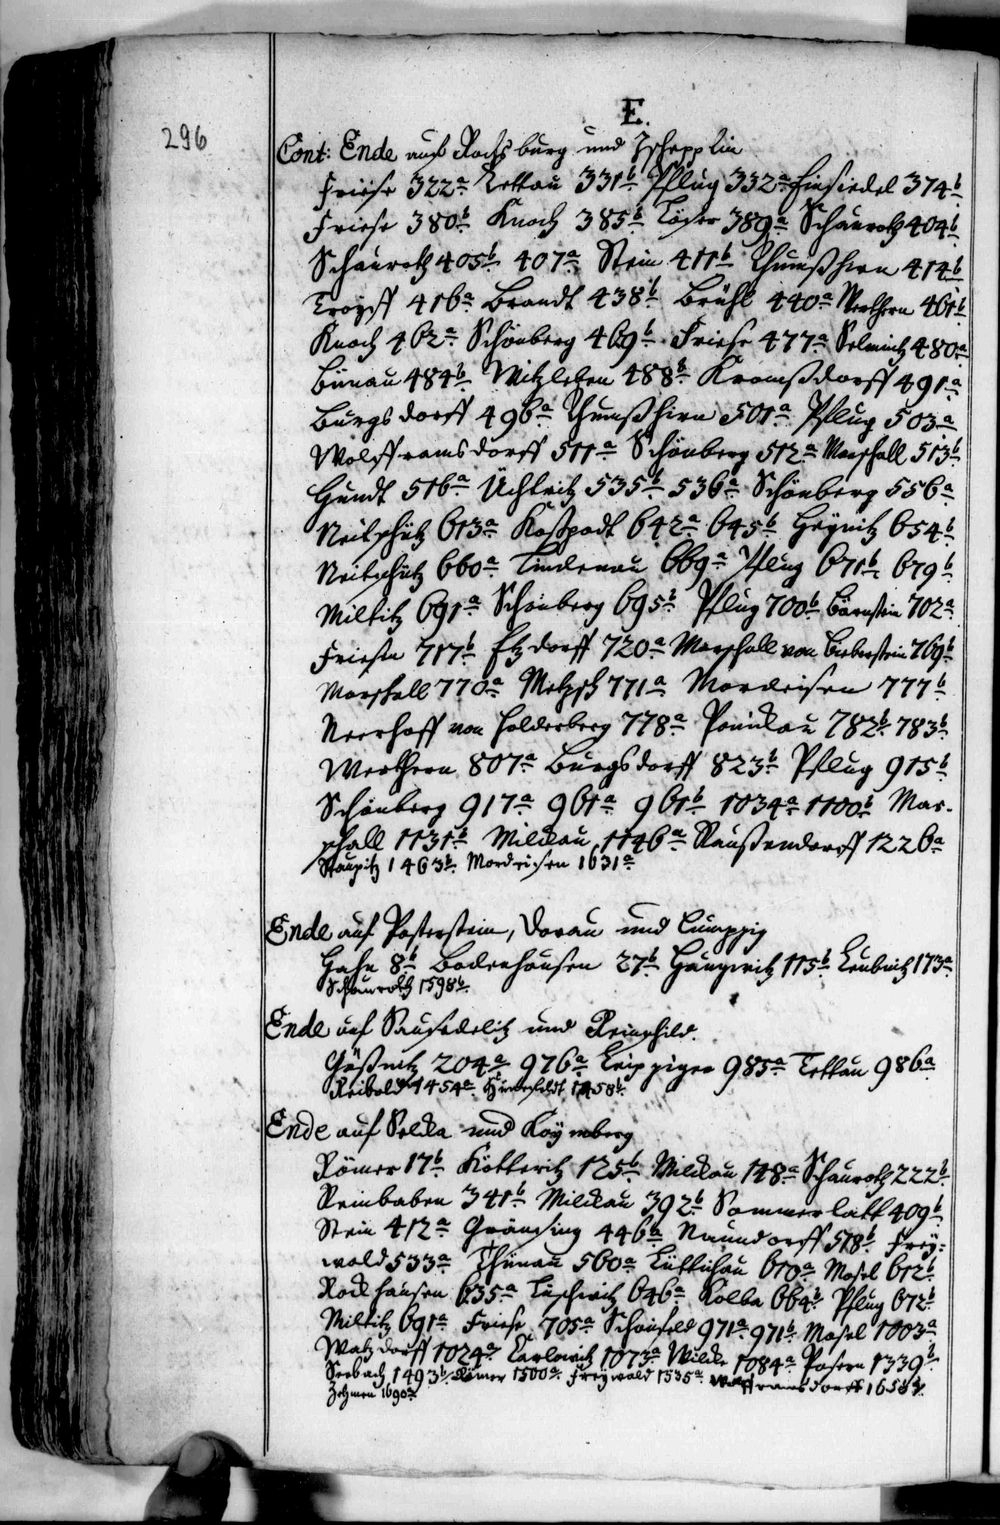 E.
296
Cont: Ende auf Rochsburg und Zschepplin
Friese 322a Tettau 331b Pflug 332a Einsiedel 374b
Friese 380b Knoch 385b Löser 389a Schauroth 404b
Schauroth 405b 407a Stein 411b Thumßhirn 414b
Troyff 416a Brandt 438b Brühl 440a Werthern 461b
Knoch 462a Schönberg 469b Friese 477a Selmitz 480a
Bünau 484b Witzleben 488b Kromßdorff 491a
Burgsdorff 496a Thumßhirn 501a Pflug 503a
Wolfframsdorff 511a Schönberg 512a Marschall 513b
Hundt 516a Üchtritz 535b 536a Schönberg 556a
Neitschütz 613a Koßpodt 642a 645b Heynitz 654b
Neitzschütz 660a Lindenau 669a Pflug 671b 679b
Miltitz 691a Schönberg 695b Pflug 700b Bärnstein 702a
Friesen 717b Etzdorff 720a Marschall von Bieberstein 769b
Marschall 770a Metzsch 771a Mordeisen 777b
Neerhoff von Holderberg 778a Ponickau 782b 783b
Werthern 807a Burgsdorff 823b Pflug 915b
Schönberg 917a 961a 961b 1034a 1100b Mar-
schall 1131b Milckau 1146a Raußendorff 1226a
Staupitz 1463b Mordeisen 1631a
Ende auf Posterstein, Dorau und Lumpzig
Hahn 8b Bodenhausen 27b Haugwitz 115b Leubnitz 173a
Schauroth 1598b
Ende auf Sausedelitz und Reinshild.
Gößnitz 204a 976a Leipziger 985a Tettau 986a
Reibold 1454a 1458b
Ende auf Selka und Kaymberg
Römer 17b Kötteritz 125b Milckau 148a Schauroth 222b
Reinbaben 341b Milckau 392b Sommerlatt 409b
Stein 412a Gränsing 446b Naundorff 518b Frey-
wald 533a Thünau 560a Lüttichau 610a Mosel 612b
Rockhausen 635a Luschwitz 646a Kolba 664b Pflug 672b
Miltitz 691a Friese 705a Schönfeld 971a 971b Mosel 1003a
Watzdorff 1024a Carlowitz 1073a Wilcke 1084a Posern 1339b
Seebach 1493b Römer 1500a Freywald 1535a Wolfframsdorff 1658b
Zehmen 1690a